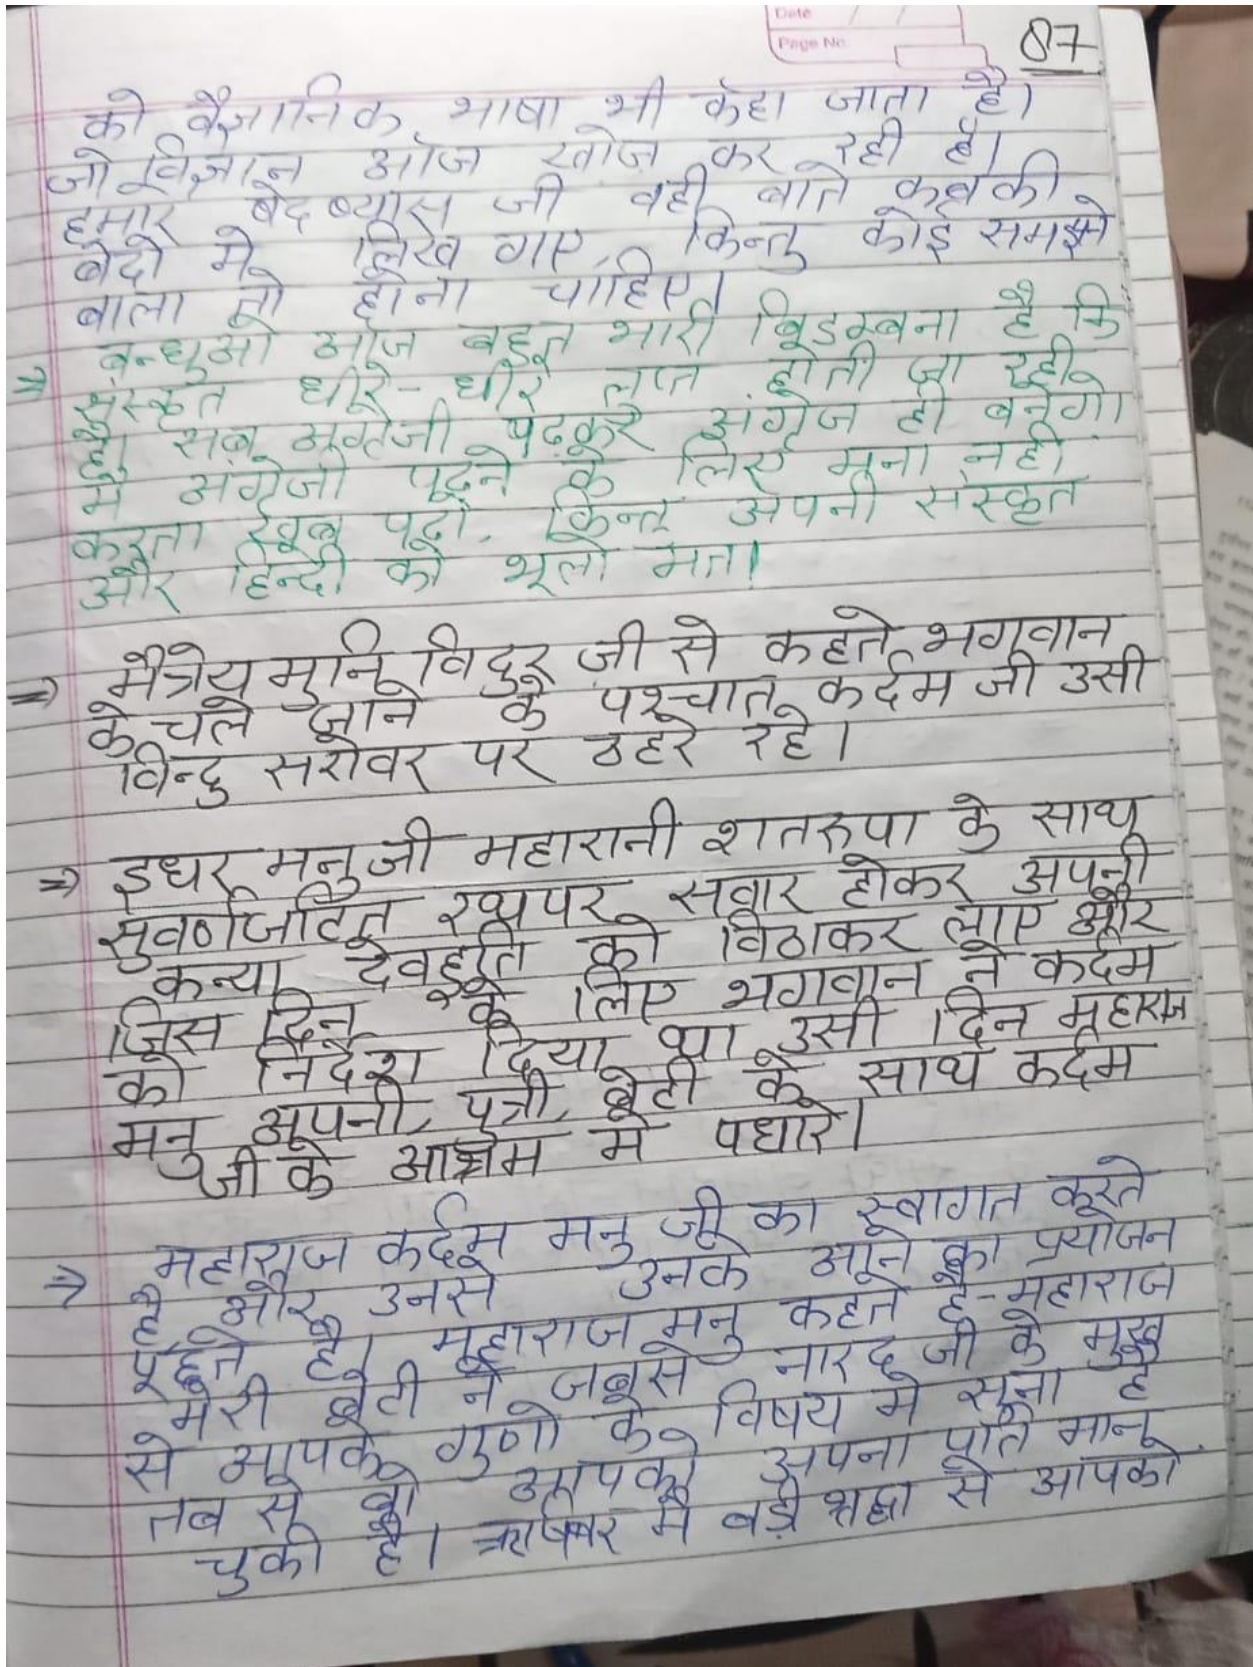 Date / /
Page No.
87
को वैज्ञानिक भाषा भी कहा जाता है।
जो विज्ञान आज खोज कर रही है।
हमारे बेद ब्यास जी वही बाते कबकी
बेदो मे लिख गए, किन्तु कोई समझने
बाला तो होना चाहिए।
⇒ बन्धुओ आज बहुत भारी बिडम्बना है कि
संस्कृत धीरे-धीरे लुप्त होती जा रही
है। सब अंग्रेजी पढ़कर अंग्रेज ही बनेगे।
मै अंग्रेजी पढ़ने के लिए मना नही
करता खूब पढो, किन्तु अपनी संस्कृत
और हिन्दी को भूलो मत।
⇒ मैत्रेय मुनि विदुर जी से कहते भगवान
के चले जाने के पश्चात् कर्दम जी उसी
विन्दु सरोवर पर ठहरे रहे।
⇒ इधर मनुजी महारानी शतरुपा के साथ
सुवर्णजटित रथपर सवार होकर अपनी
कन्या देवहूति को विठाकर लाए और
जिस दिन के लिए भगवान ने कर्दम
को निर्देश दिया था उसी दिन महाराज
मनु अपनी पुत्री, बेटी के साथ कर्दम
जी के आश्रम मे पधारे।
⇒ महाराज कर्दम मनु जी का स्वागत करते
है और उनसे उनके आने का प्रयोजन
पूछते है। महाराज मनु कहते है-महाराज
मेरी बेटी ने जबसे नारद जी के मुख
से आपके गुणो के विषय मे सुना है
तब से वो आपको अपना पति मान
चुकी है। मै बड़ी श्रद्धा से आपको